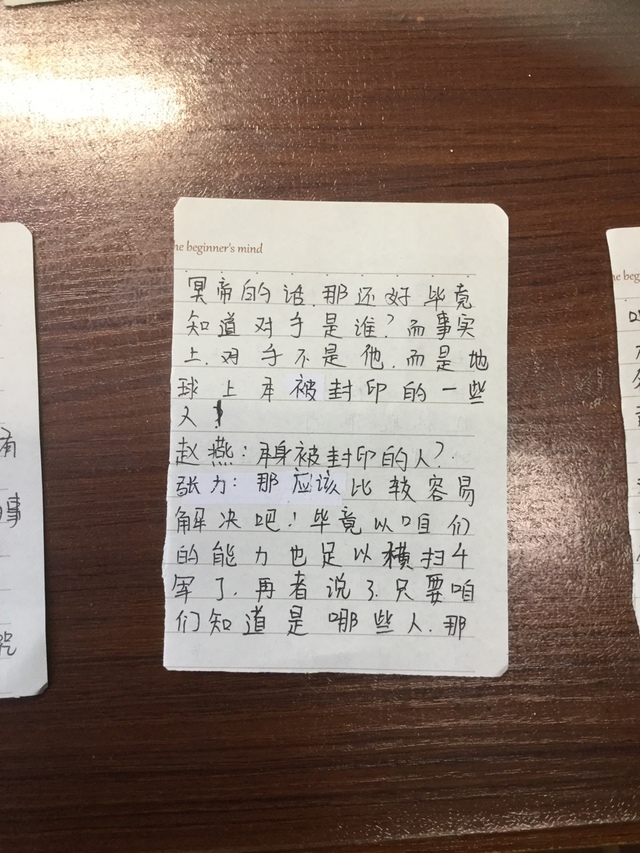 he beginner's mind
冥帝的话.那还好毕竟
知道对手是谁?而事实
上.对手不是他.而是地
球上本被封印的一些
人
赵燕:本身被封印的人?
张力:那应该比较容易
解决吧!毕竟以咱们
的能力也足以横扫千
军了.再者说了.只要咱
们知道是哪些人.那
he beg
事